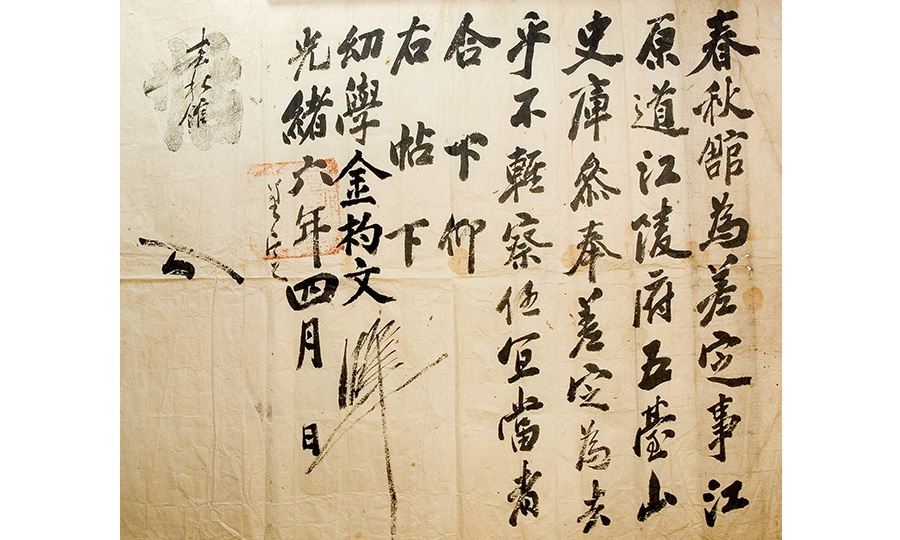 春秋舘為差定事江
原道江陵府五臺山
史庫叅奉差定為去
乎不輕察任宜當者
合下仰
右帖下
幼學金杓文 準
光緖六年四月 日
春秋舘